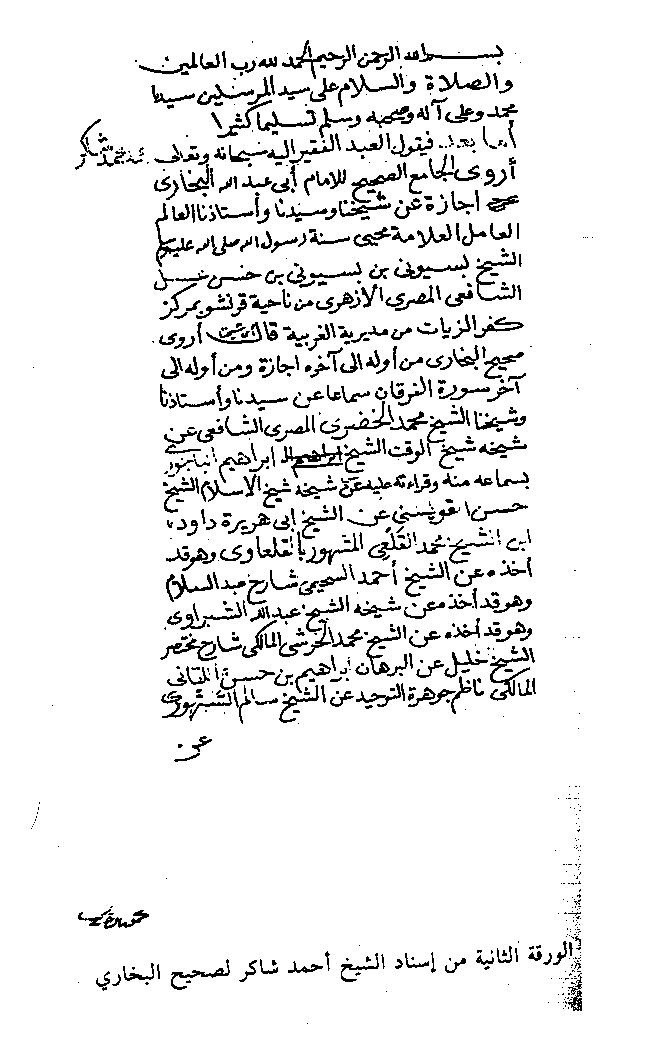 بسم الله الرحمن الرحيم الحمد لله رب العالمين
والصلاة والسلام على سيد المرسلين سيدنا
محمد وعلى آله وصحبه وسلم تسليما كثيرا
أما بعد. فيقول العبد الفقير اليه سبحانه وتعالى محمد شاكر
أروى الجامع الصحيح للامام أبى عبد الله البخارى
اجازة عن شيخنا وسيدنا وأستاذنا العالم
العامل العلامة محيى سنة رسول الله صلى الله عليه وسلم
الشيخ بسيونى بن بسيونى بن حسن عسل
الشافعى المصرى الأزهرى من ناحية قرنشو بمركز
كفر الزيات من مديرية الغربية قال أروى
صحيح البخارى من أوله الى آخره اجازة ومن أوله الى
آخر سورة الفرقان سماعا عن سيدنا وأستاذنا
وشيخنا الشيخ محمد الخضرى المصرى الشافعى عن
شيخه شيخ الوقت الشيخ ابراهيم
بسماعه منه وقراءته عليه عن شيخه شيخ الاسلام الشيخ
حسن القويسنى عن الشيخ ابى هريرة داود
ابن الشيخ محمد القلعى المشهور بالقلعاوى وهو قد
أخذه عن الشيخ أحمد السحيمى شارح عبد السلام
وهو قد أخذه عن شيخه الشيخ عبد الله الشبراوى
وهو قد أخذه عن الشيخ محمد الخرشى المالكى شارح مختصر
الشيخ خليل عن البرهان ابراهيم بن حسن اللقانى
المالكى ناظم جوهرة التوحيد عن الشيخ سالم السنهورى
عن
الورقة الثانية من إسناد الشيخ أحمد شاكر لصحيح البخاري